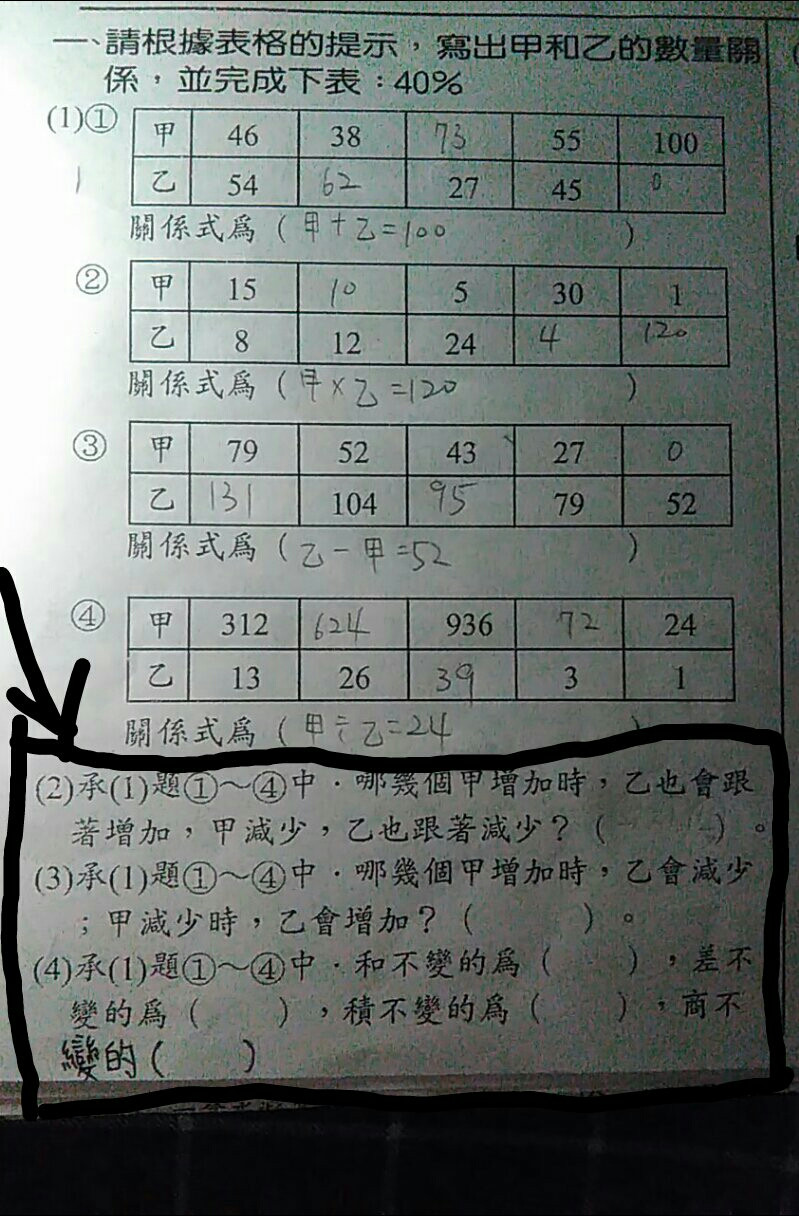 一、請根據表格的提示，寫出甲和乙的數量關
係，並完成下表：40%
(1)① 甲 46 38 73 55 100
乙 54 62 27 45 0
關係式爲（甲＋乙=100）
② 甲 15 10 5 30 1
乙 8 12 24 4 120
關係式爲（甲×乙=120）
③ 甲 79 52 43 27 0
乙 131 104 95 79 52
關係式爲（乙－甲=52）
④ 甲 312 624 936 72 24
乙 13 26 39 3 1
關係式爲（甲÷乙=24）
(2)承(1)題①～④中．哪幾個甲增加時，乙也會跟
著增加，甲減少，乙也跟著減少？（ ）。
(3)承(1)題①～④中．哪幾個甲增加時，乙會減少
；甲減少時，乙會增加？（ ）。
(4)承(1)題①～④中．和不變的爲（ ），差不
變的爲（ ），積不變的爲（ ），商不
變的（ ）